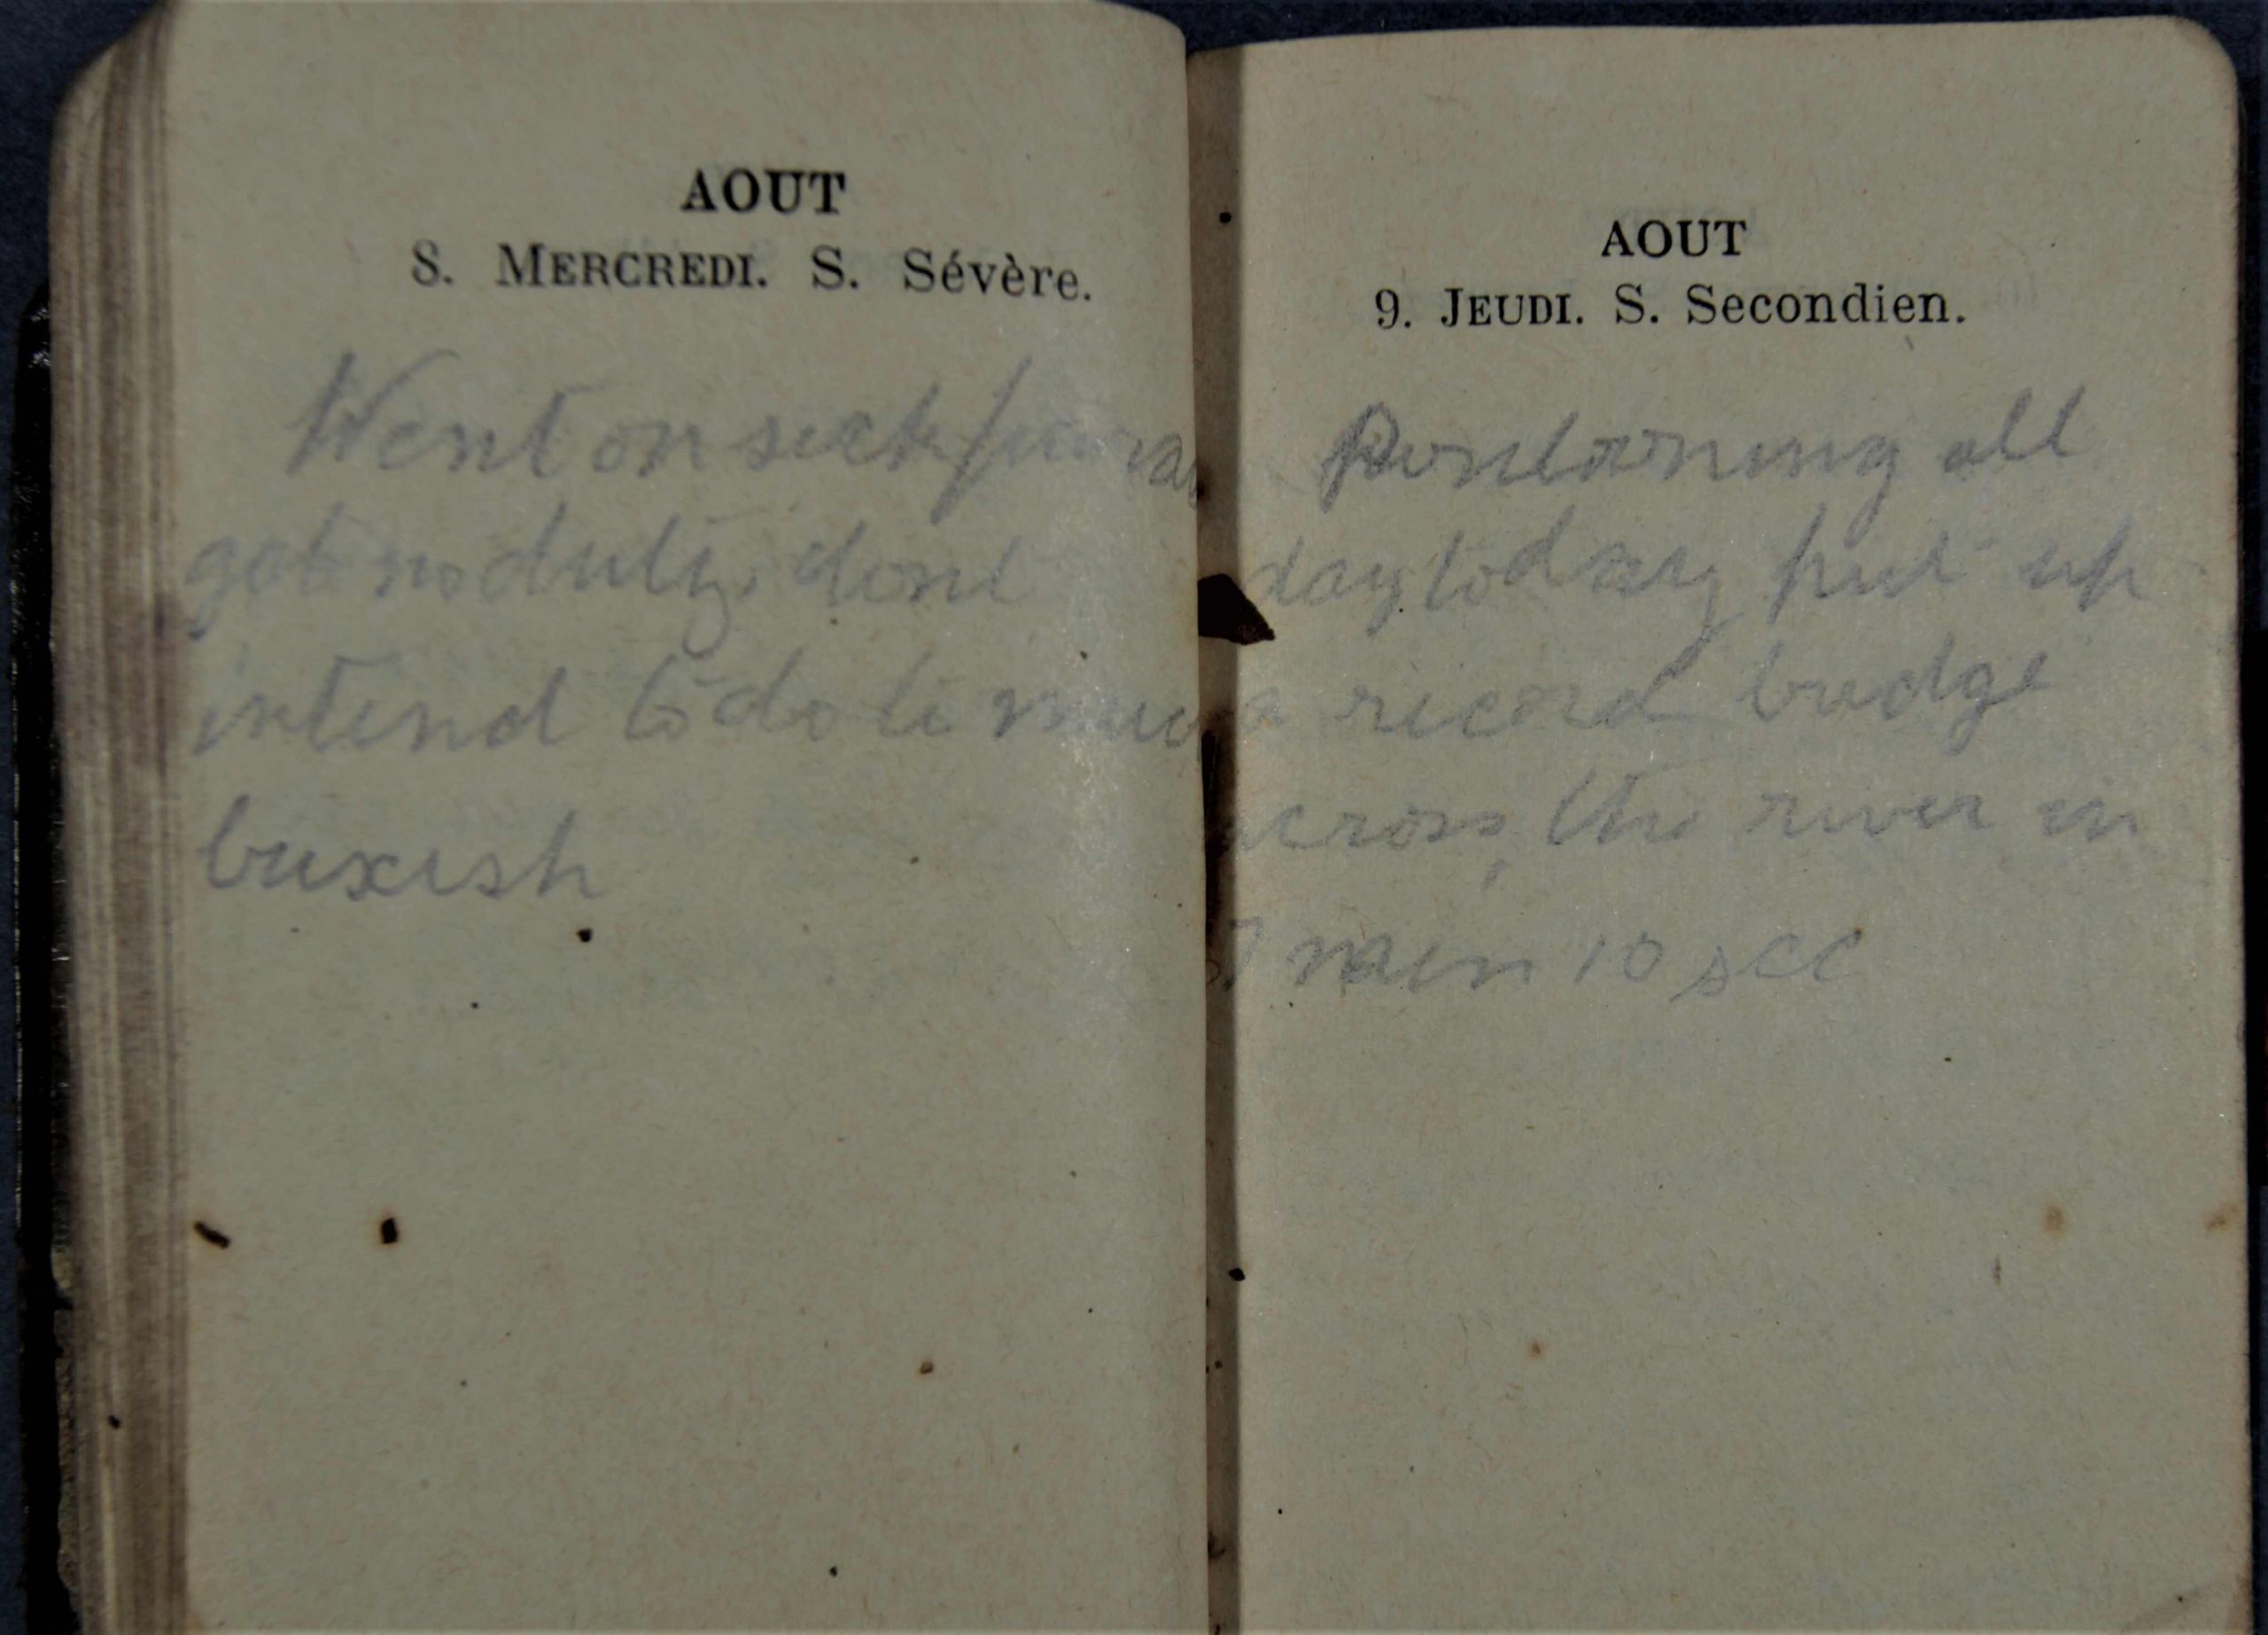 AOUT
8. MERCREDI. S. Sévère.
Went on sick
got no duty. dont
intend to do to
buxish
AOUT
9. JEUDI. S. Secondien.
Pontooning all
day today put up
a record bridge
across the river in
7 min 10 sec